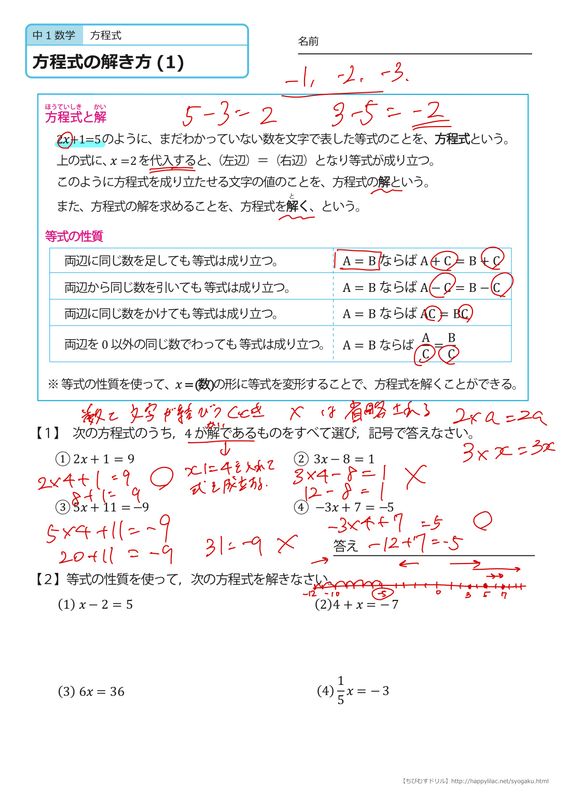 中1数学 方程式
方程式の解き方 (1)
名前
-1, -2, -3.
ほうていしき かい
方程式と解
5-3=2 3-5=-2
2x+1=5のように、まだわかっていない数を文字で表した等式のことを、方程式という。
上の式に、x=2を代入すると、（左辺）＝（右辺）となり等式が成り立つ。
このように方程式を成り立たせる文字の値のことを、方程式の解という。
と
また、方程式の解を求めることを、方程式を解く、という。
等式の性質
両辺に同じ数を足しても等式は成り立つ。 A = B ならば A + C = B + C
両辺から同じ数を引いても等式は成り立つ。 A = B ならば A − C = B − C
両辺に同じ数をかけても等式は成り立つ。 A = B ならば AC = BC
両辺を0以外の同じ数でわっても等式は成り立つ。 A = B ならば A/C = B/C
※ 等式の性質を使って、x = (数)の形に等式を変形することで、方程式を解くことができる。
数と文字が結びつくとき × は省略される 2×a=2a
【1】 次の方程式のうち，4が解であるものをすべて選び，記号で答えなさい。
かい
3×x=3x
① 2x + 1 = 9 ② 3x − 8 = 1
2×4+1=9 ○
8+1=9
xに=4を入れて
3×4-8=1 ×
12-8=1
③ 5x + 11 = −9 ④ −3x + 7 = −5
5×4+11=-9
20+11=-9 31=-9 ×
-3×4+7=-5 ○
答え -12+7=-5
【2】等式の性質を使って，次の方程式を解きなさい。
-12 -10 -5 0 3 5 7
(1) x − 2 = 5 (2) 4 + x = −7
(3) 6x = 36 (4) 1/5 x = −3
【ちびむすドリル】http://happylilac.net/syogaku.html